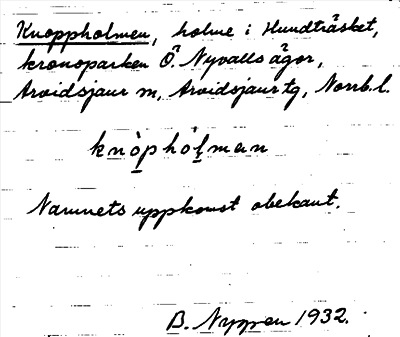 Knoppholmen, holme i Hundträsket,
kronoparken Ö. Nyvalls ägor,
Arvidsjaur sn, Arvidsjaur tg, Norrb. l.
knòphól̥man
Namnets uppkomst obekant.
B. Nyppen 1932.